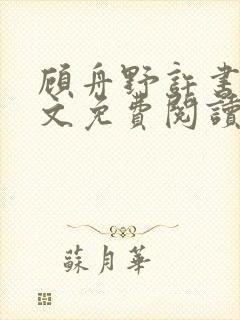 顾舟野許書
文免費閱讀
蘇月華